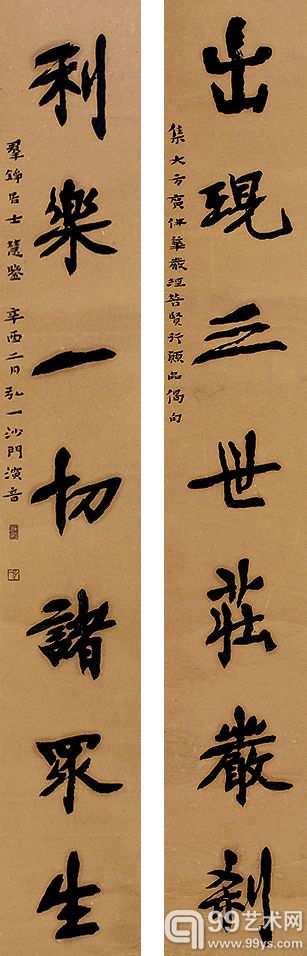 出現三世莊嚴刹
集大方廣佛華嚴經普賢行願品偈句
利樂一切諸眾生
群錚居士慧鑒 辛酉二月弘一沙門演音
99艺术网
www.99ys.com